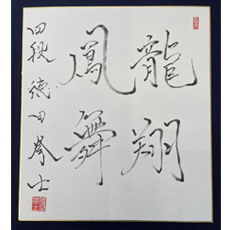 龍翔
鳳舞
四段 徳田拳士